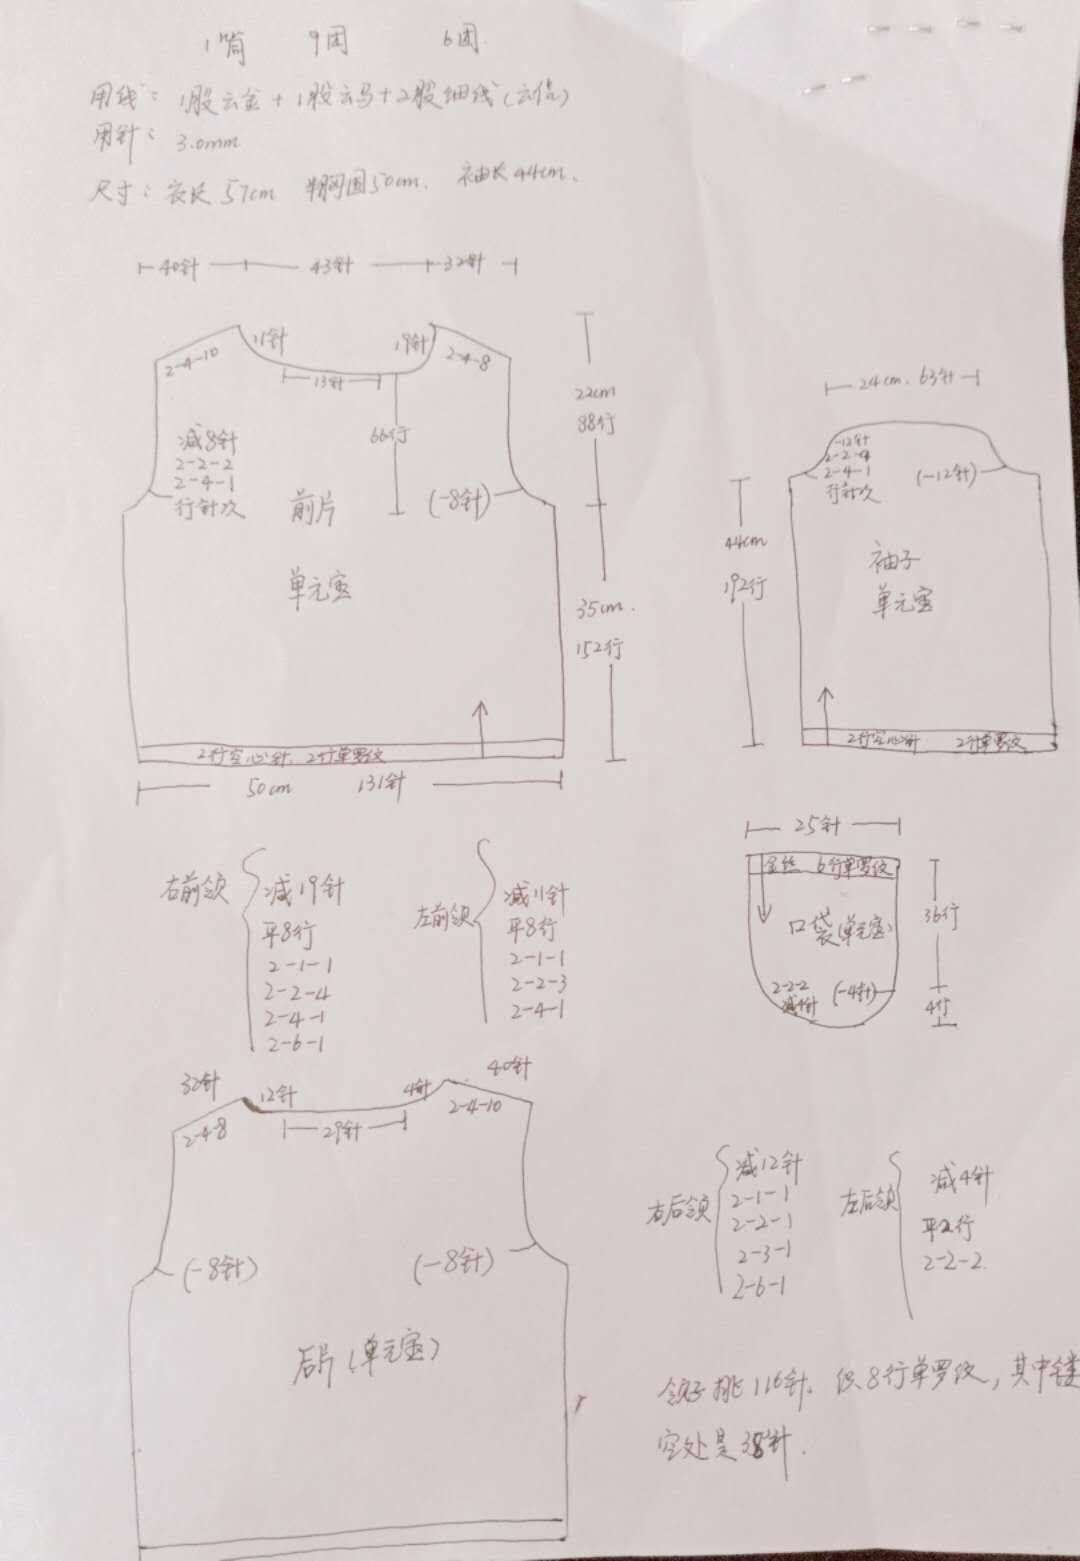 1筒 9团 6团
用线: 1股云金+1股云马+2股细线(云倍)
用针: 3.0mm
尺寸: 衣长57cm 半胸围50cm. 袖长44cm.
40针 43针 32针
11针 19针
2-4-10 2-4-8
13针
减8针
2-2-2
2-4-1
行针次
66行
(-8针)
前片
单元宝
22cm
88行
35cm.
152行
2行空心针, 2行单罗纹
50cm 131针
24cm. 63针
-12针
2-2-4
2-4-1
行针次
(-12针)
44cm
192行
袖子
单元宝
2行空心针 2行单罗纹
25针
金丝 6行单罗纹
口袋(单元宝)
36行
2-2-2
减4针
(-4针)
4行
右前领
减19针
平8行
2-1-1
2-2-4
2-4-1
2-6-1
左前领
减11针
平8行
2-1-1
2-2-3
2-4-1
32针 12针 4针 40针
2-4-8 2-4-10
29针
(-8针) (-8针)
后片(单元宝)
右后领
减12针
2-1-1
2-2-1
2-3-1
2-6-1
左后领
减4针
平2行
2-2-2.
领子挑116针. 织8行单罗纹, 其中镂
空处是38针.